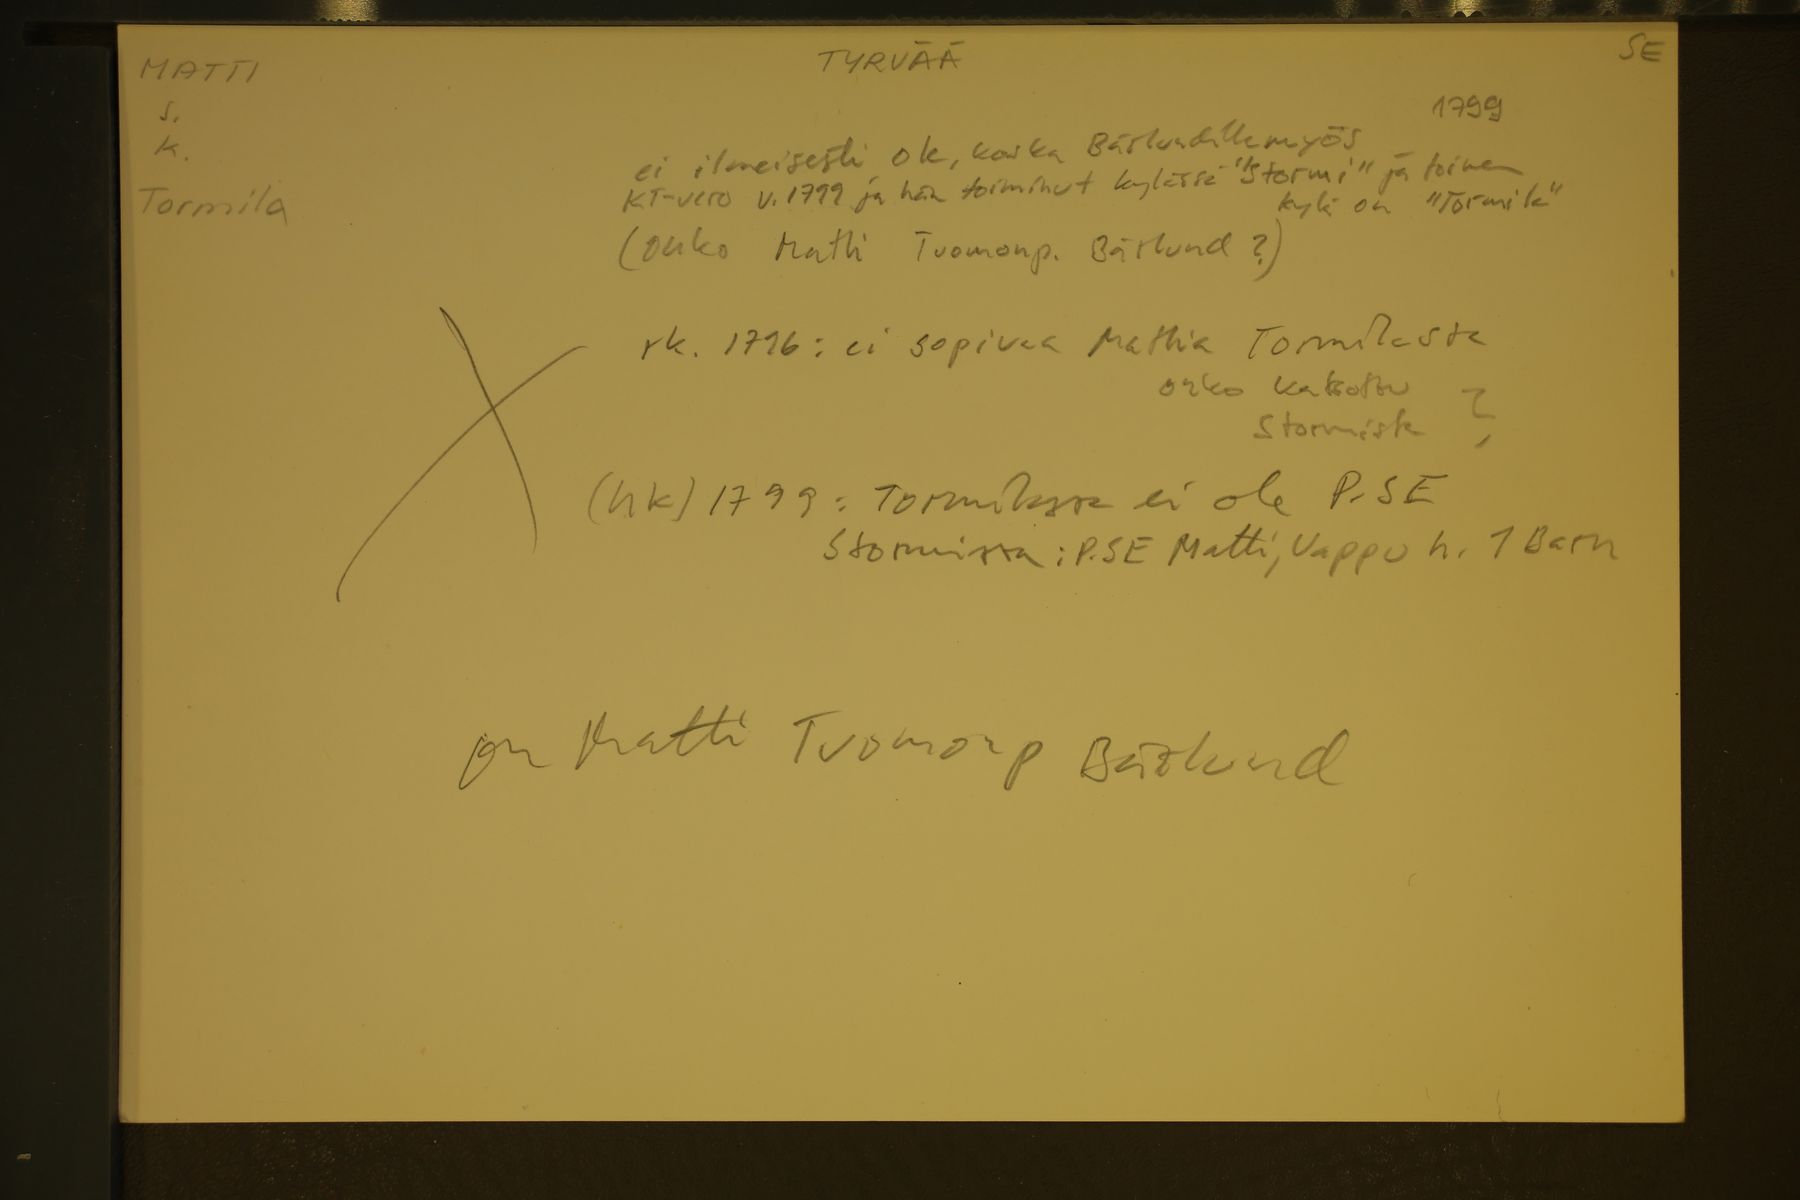 MATTI
TYRVÄÄ
SE
s.
k.
Tormila
1799
ei ilmeisesti ole, koska Bärlundille myös
KT-vero v. 1799 ja hän toiminut kylässä "Stormi" ja toinen
kylä on "Tormila"
(onko Matti Tuomonp. Bärlund?)
rk. 1796: ei sopivaa Mattia Tormilasta
onko katsottu
Stormista ?
(hk) 1799: Tormilassa ei ole P.SE
Stormissa: P.SE Matti, Vappu h. 1 Barn
on Matti Tuomonp Bärlund